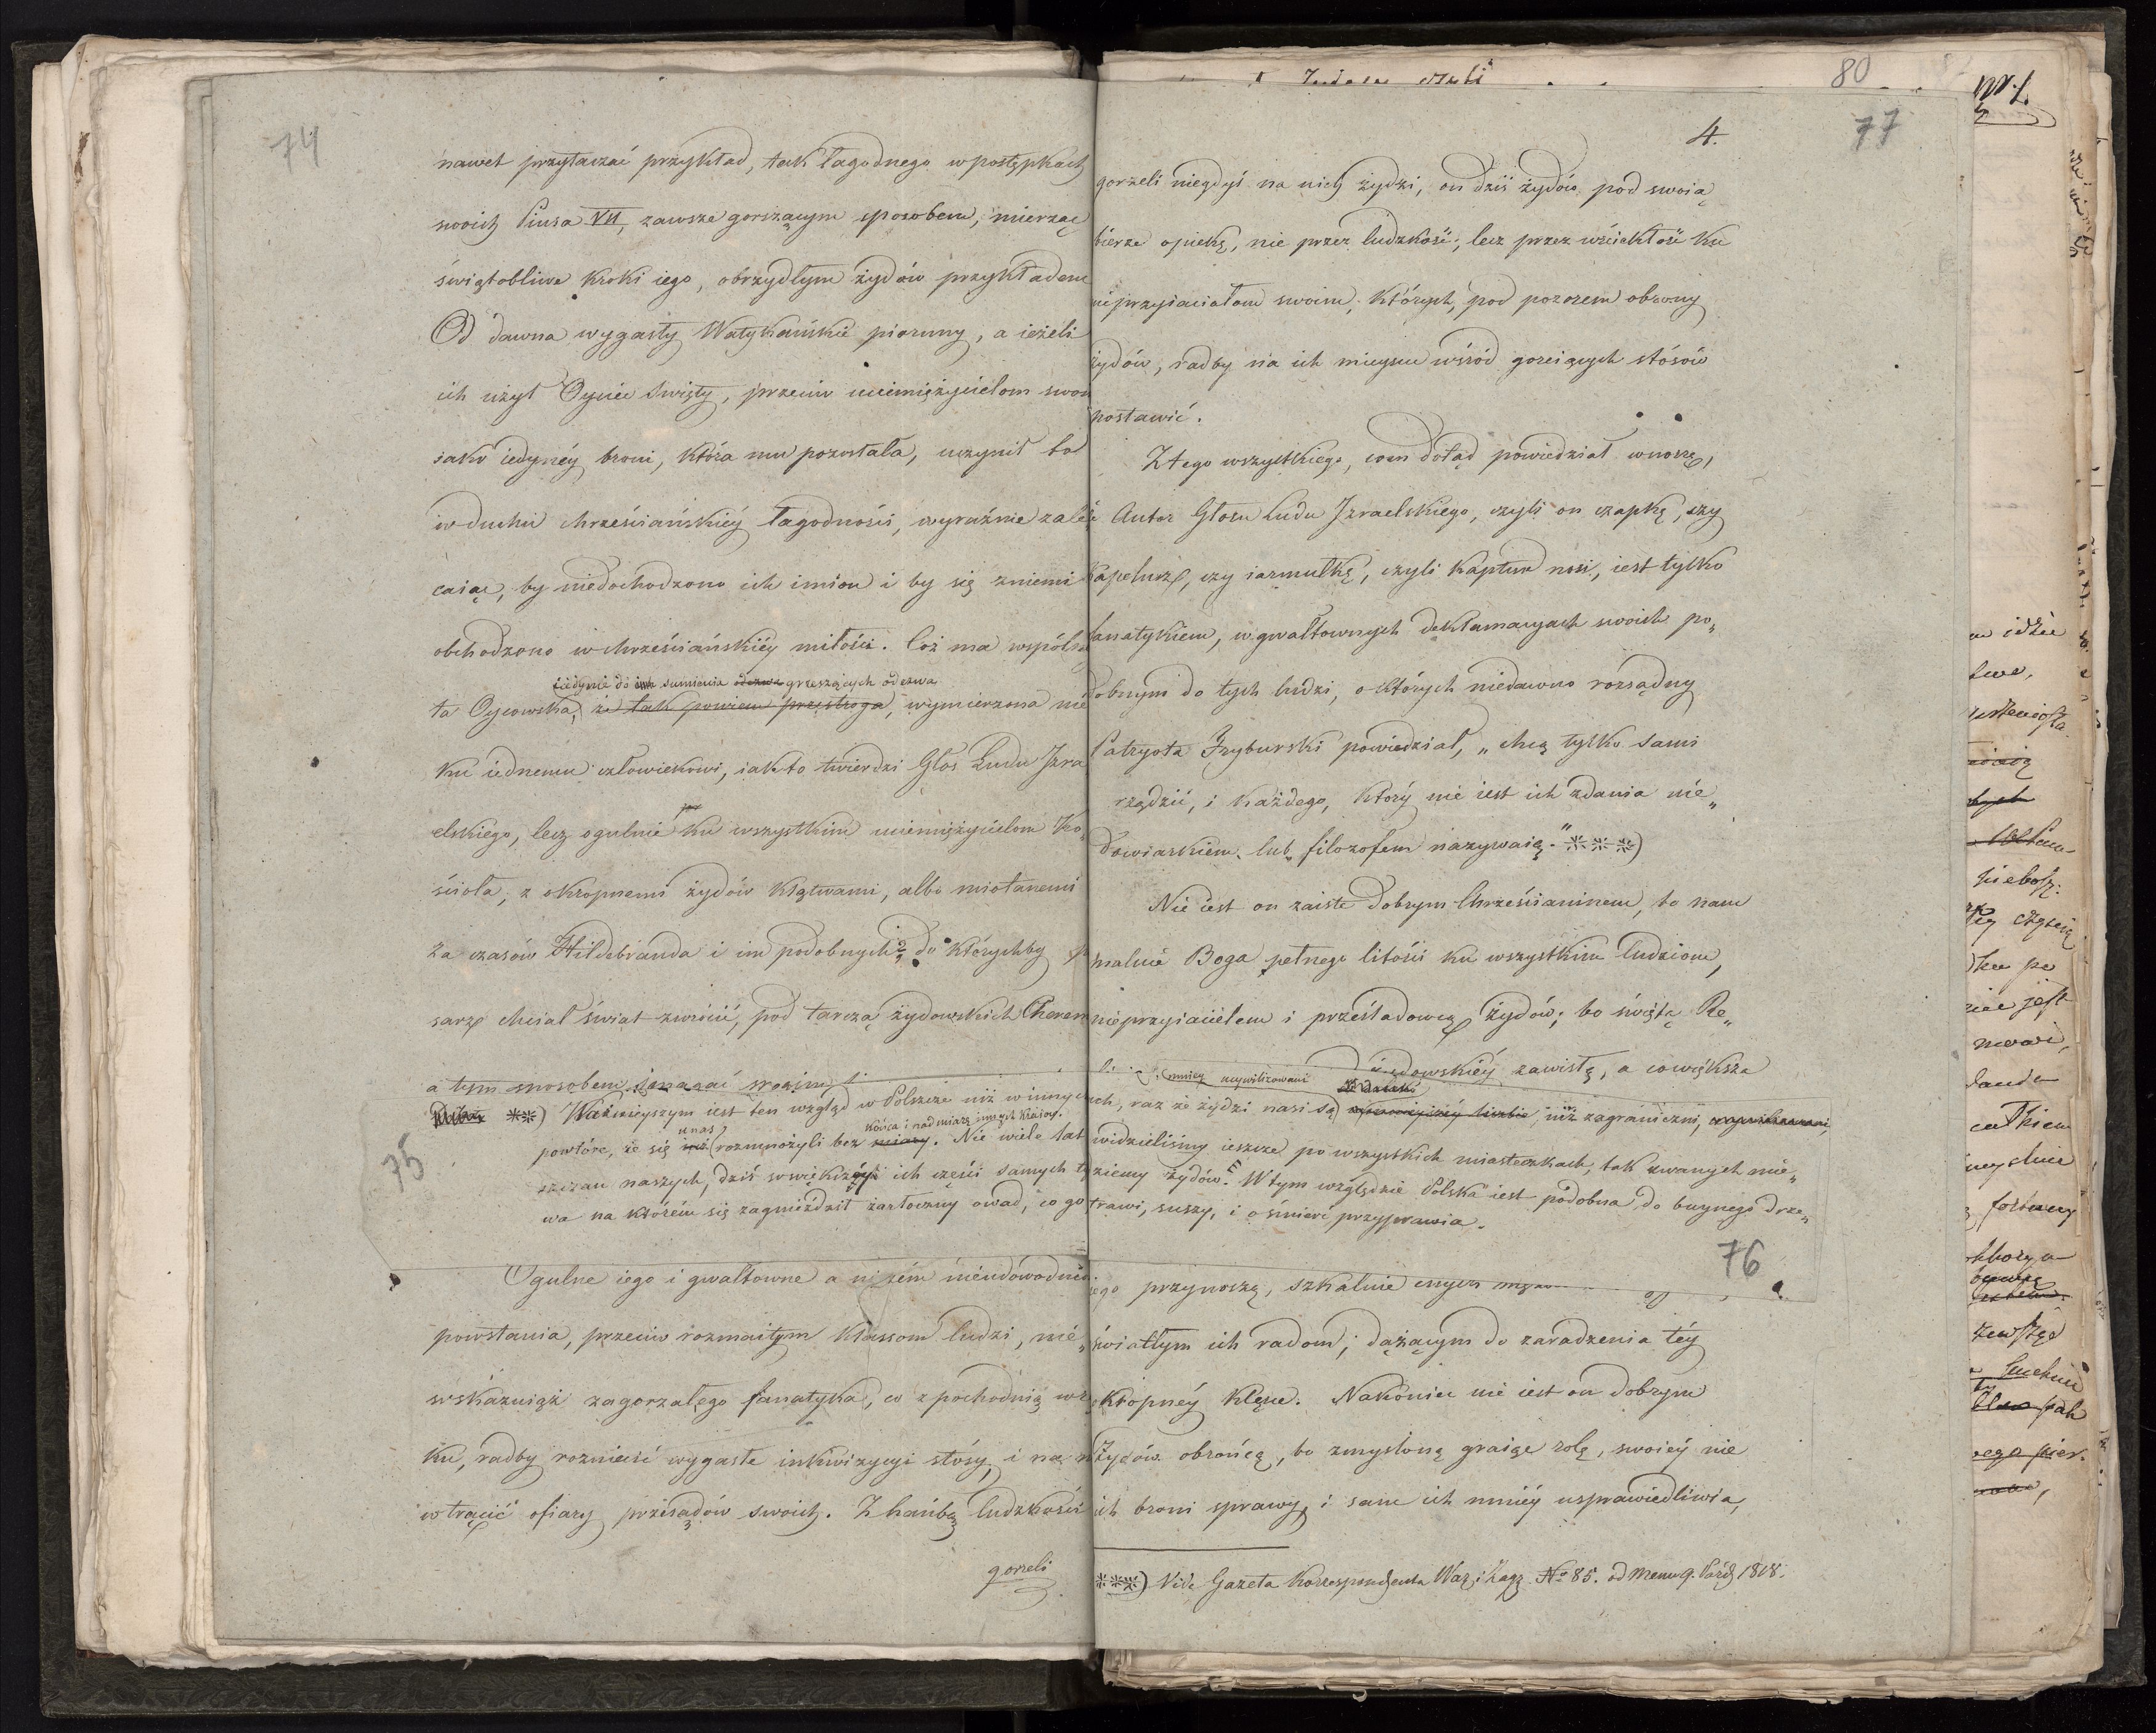 74
nawet przytaczać przykład, tak łagodnego w postępkach
swoich Piusa VII, zawsze gorszącym sposobem, mierząc
świątobliwe kroki iego, obrzydłym żydów przykładem
Od dawna wygasły Watykańskie pioruny, a ieżeli
ich użył Oyciec Święty, przeciw uciemiężycielom swo
iako iedynéy broni, która mu pozostała, uczynił to
w duchu chrześciańskiéy łagodności, wyraźnie zale
caiąc, by niedochodzono ich imion i by się z niemi
obchodzono w chrześciańskiéy miłości. Coż ma wspóln
iedynie do sumienia odezwa grzeszących odezwa
ta Oycowska, że tak powiem przestroga, wymierzona nie
ku iednemu człowiekowi, iak to twierdzi Głos Ludu Izra
elskiego, lecz ogulnie ku wszystkim uciemiężycielom Ko„
ścioła, z okropnemi żydów klątwami, albo miotanemi
za czasów Hildebranda i im podobnych? do którychby
sarz chciał świat zwrócić, pod tarczą żydowskich Cherem
a tym sposobem
75
**) Ważnieyszym iest ten wzgląd w Polszcze niż w innych
u nas końca i nad miarę innych kraiow.
powtóre, że się iuż rozmnożyli bez miary. Nie wiele lat
szczan naszych, dziś w większéy ich części samych
wa na którém się zagnieździł żarłoczny owad, co go
Ogulne iego i gwałtowne a niczém nieudowodnio
powstania, przeciw rozmaitym klassom ludzi, nie„
wskazuiąż zagorzałego fanatyka, co z pochodnią w rę
ku, radby rozniecić wygasłe inkwizycyi stósy, i na
wtrącić ofiary przesądów swoich. Z hańbą ludzkości
gorzeli
80
4.
77
gorzeli niegdyś na nich żydzi, on dziś żydów pod swoią
bierze opiekę, nie przez ludzkość, lecz przez wściekłość ku
nieprzyiaciołom swoim, których, pod pozorem obrony
żydów, radby na ich mieyscu wśród goreiących stósów
postawić.
Z tego wszystkiego, com dotąd powiedział wnoszę,
że Autor Głosu Ludu Izraelskiego, czyli on czapkę, czy
kapelusz, czy iarmułkę, czyli kaptur nosi, iest tylko
fanatykiem, w gwałtownych deklamacyach swoich po„
dobnym do tych ludzi, o których niedawno rozsądny
Patryota Fryburski powiedział, „chcą tylko sami
rządzić, i każdego, który nie iest ich zdania nie„
dowiarkiem lub filozofem nazywaią." ***)
Nie iest on zaiste dobrym Chrześcianinem, bo nam
maluie Boga pełnego litości ku wszystkim ludziom,
nieprzyiacielem i prześladowcą żydów; bo świętą Re„
żydowskiéy zawisłą, a cowiększa
mniéy ucywilizowani
raz że żydzi nasi są niż zagraniczni,
widzieliśmy ieszcze po wszystkich miasteczkach, tak zwanych mie„
żydów. W tym względzie Polska iest podobna do buynego drze„
trawi, suszy, i o śmierć przyprawia.
76
iego przynoszą, szkaluie
światłym ich radom, dążącym do zaradzenia téy
okropnéy klęsce. Nakoniec nie iest on dobrym
Żydów obrońcą, bo zmysloną graiąc rolę, swoiéy nie
ich broni sprawy, i sam ich mniéy usprawiedliwia,
***) Vide Gazeta Korrespondenta War: i Zagr. No 85. 1818.